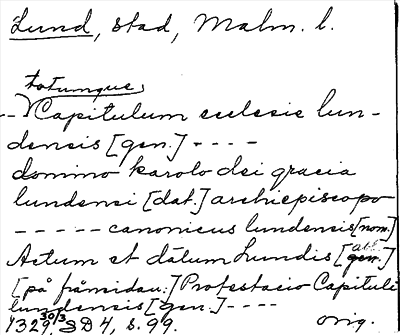 Lund, stad, Malm. l.
totumque
-- Capitulum ecclesie lun-
densis [gen.] ----
domino karolo dei gracia
lundensi [dat.] archiepiscopo
----- canonicus lundensis [nom.]
Actum et datum Lundis [abl.]
[på frånsidan:] Protestacio Capituli
lundensis [gen.] ----
1329 30/3 SD 4, s. 99. orig.